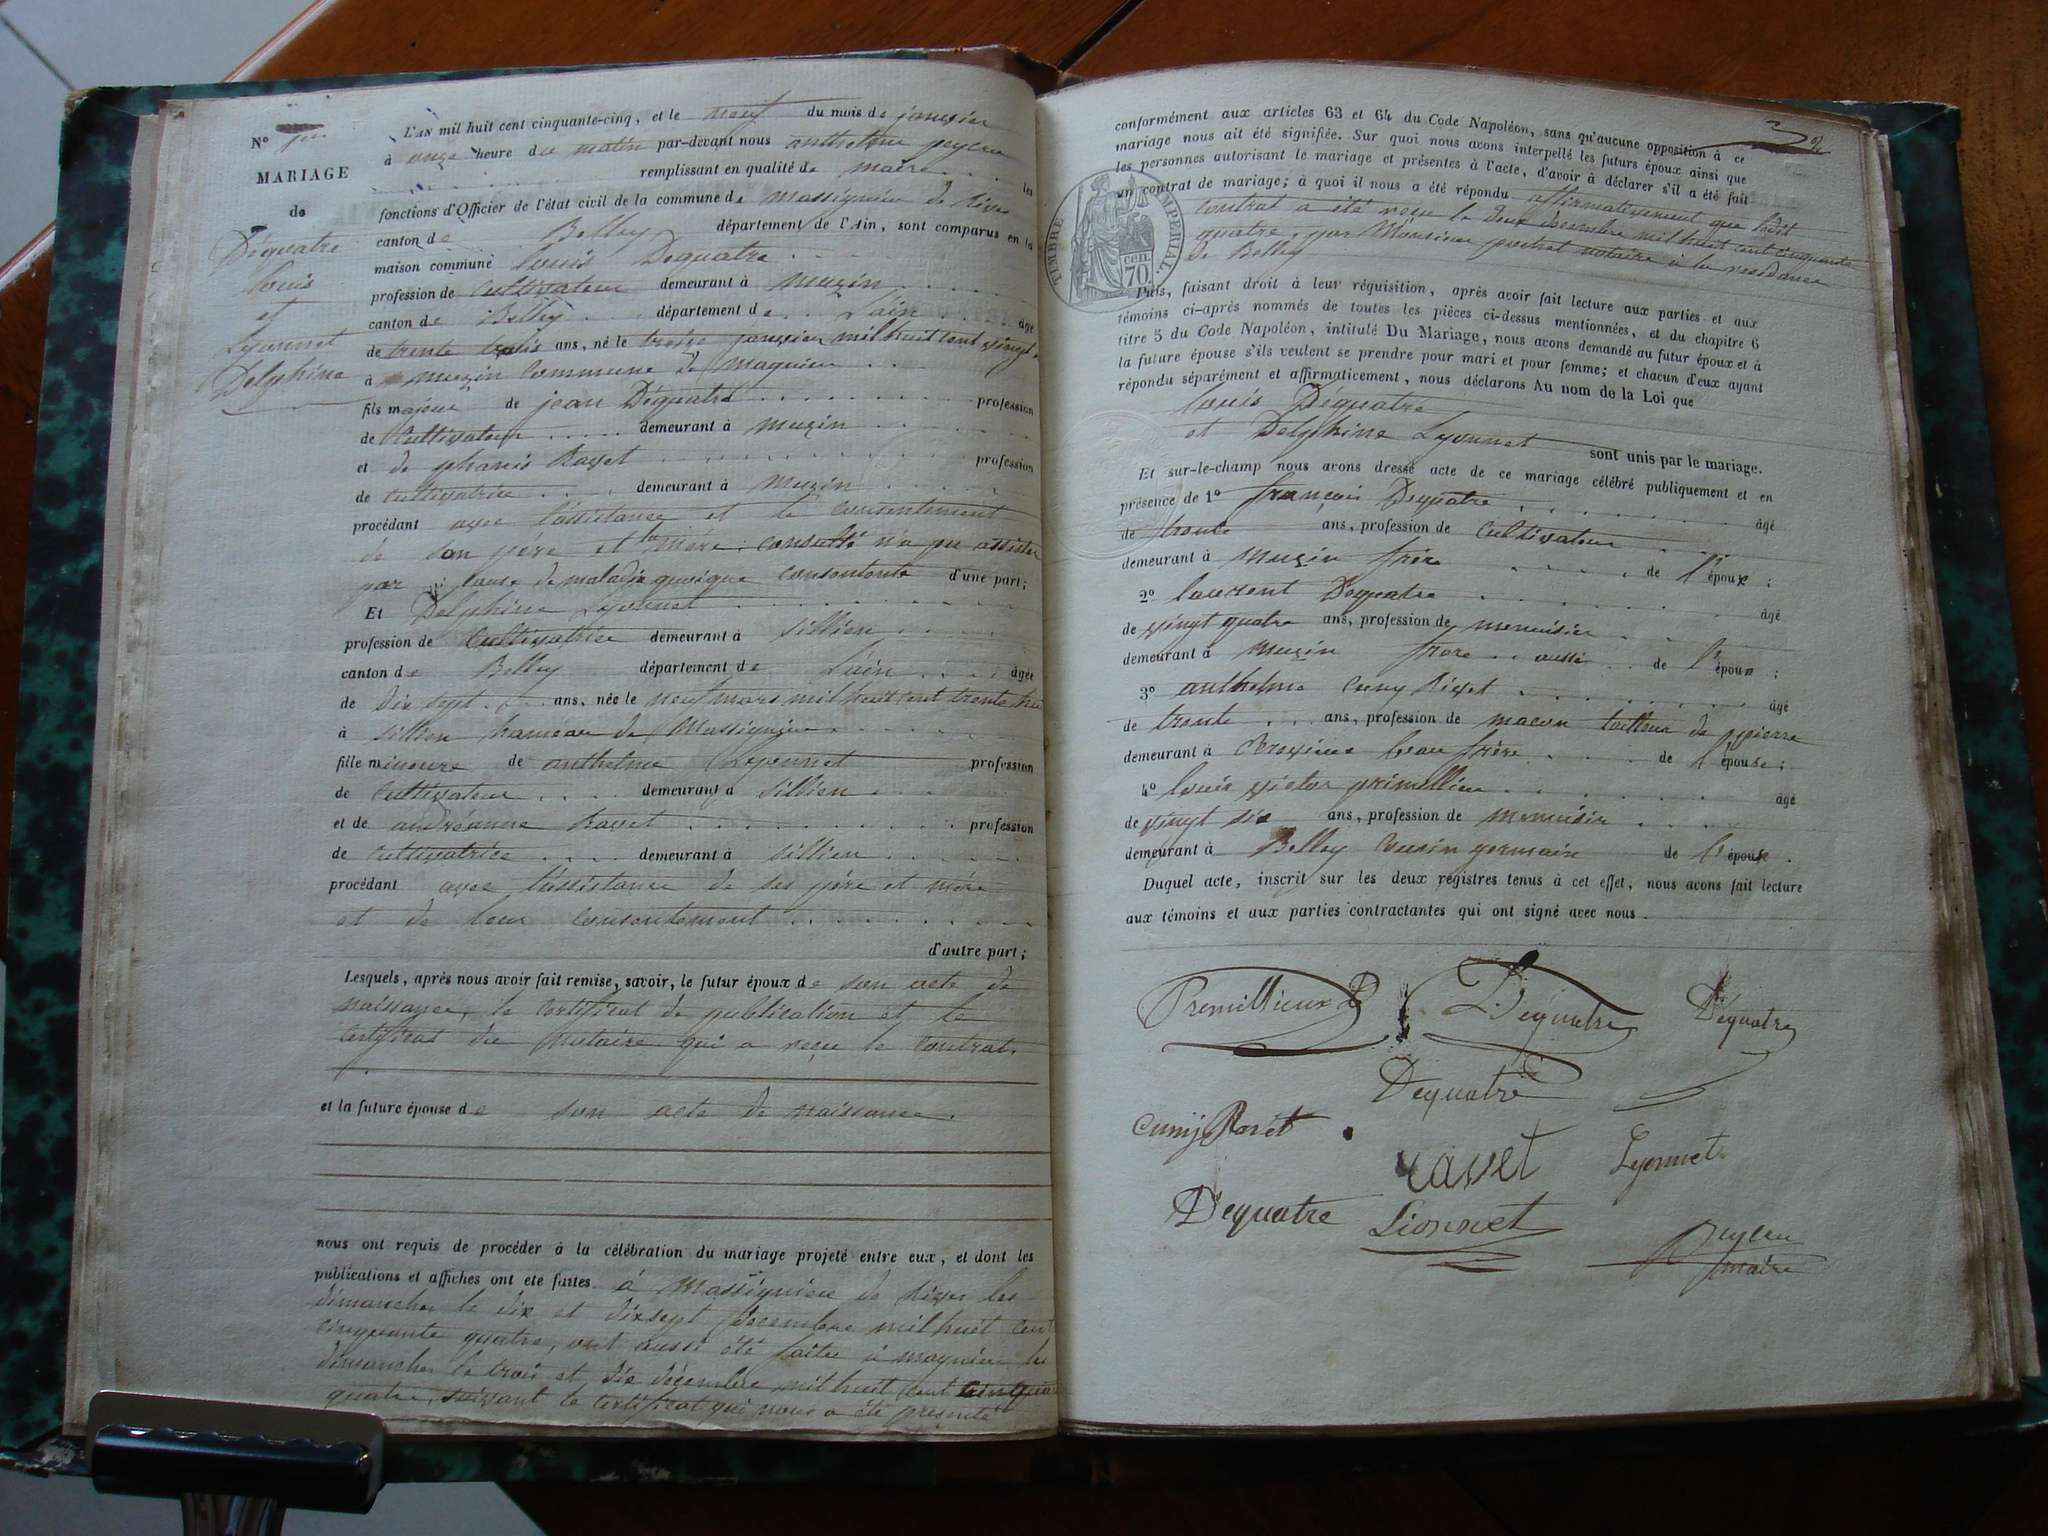 No un
MARIAGE
de
Dequatre
Louis
et
Lyonnet
Delphine
L'an mil huit cent cinquante-cinq, et le neuf du mois de janvier
à onze heure du matin par-devant nous anthelme peyeu
remplissant en qualité de maire les
fonctions d'Officier de l'état civil de la commune de massignieu de Rives
canton de Belley département de l'Ain, sont comparus en la
maison commune Louis Dequatre
profession de Cultivateur demeurant à muzin
canton de Belley département de Lain âgé
de trente trois ans, né le treize janvier mil huit cent vingt
à muzin Commune de magnieu
fils majeur de jean Dequatre profession
de Cultivateur demeurant à muzin
et de Ravet profession
de cultivatrice demeurant à muzin
procédant avec l'assistance et le consentement
de son père et la mère consulté n'a pu assister
par cause de maladie quoique consentente d'une part;
Et Delphine Lyonnet
profession de Cultivatrice demeurant à sillien
canton de Belley département de Lain âgée
de dix sept ans, née le neuf mars mil huit cent trente huit
à sillien hameau de Massignieu
fille mineure de anthelme Lyonnet profession
de Cultivateur demeurant à Sillien
et de andréanne Ravet profession
de Cultivatrice demeurant à sillien
procédant avec l'assistance de ses père et mère
et de leur consentement
d'autre part;
Lesquels, après nous avoir fait remise, savoir, le futur époux de son acte de
naissance, le certificat de publication et le
certificat du Notaire qui a reçu le contrat.
et la future épouse de son acte de naissance.
nous ont requis de procéder à la célébration du mariage projeté entre eux, et dont les
publications et affiches ont été faites à Massignieu de Rives les
dimanches le dix et dixsept Décembre mil huit cent
cinquante quatre, ont aussi été faites à magnieu les
dimanches le trois et dix décembre mil huit cent cinquante
quatre, suivant le certificat qui nous a été présenté
conformément aux articles 63 et 64 du Code Napoléon, sans qu'aucune opposition à ce
mariage nous ait été signifiée. Sur quoi nous avons interpellé les futurs époux ainsi que
les personnes autorisant le mariage et présentes à l'acte, d'avoir à déclarer s'il a été fait
un contrat de mariage; à quoi il nous a été répondu affirmativement que ledit
contrat a été reçu le deux décembre mil huit cent cinquante
quatre, par Monsieur notaire à la residence
de Belley
TIMBRE IMPERIAL
CEN.
70.
Puis, faisant droit à leur réquisition, après avoir fait lecture aux parties et aux
témoins ci-après nommés de toutes les pièces ci-dessus mentionnées, et du chapitre 6
titre 5 du Code Napoléon, intitulé Du Mariage, nous avons demandé au futur époux et à
la future épouse s'ils veulent se prendre pour mari et pour femme; et chacun d'eux ayant
répondu séparément et affirmaticement, nous déclarons Au nom de la Loi que
Louis Dequatre
et Delphine Lyonnet sont unis par le mariage.
Et sur-le-champ nous avons dressé acte de ce mariage célébré publiquement et en
présence de 1o françois Dequatre âgé
de trente ans, profession de Cultivateur
demeurant à muzin frère de l'époux;
2o laurent Dequatre âgé
de vingt quatre ans, profession de menuisier
demeurant à muzin frere aussi de l'époux;
3o anthelme Cuny Ravet âgé
de trente ans, profession de macon tailleur de pierre
demeurant à beau frère de l'épouse;
4o Louis victor primillieu âgé
de vingt six ans, profession de menuisier
demeurant à Belley Cousin germain de l'époux.
Duquel acte, inscrit sur les deux registres tenus à cet effet, nous avons fait lecture
aux témoins et aux parties contractantes qui ont signé avec nous
Premillieux Dequatre Dequatre
Dequatre
Cuny Ravet
ravet Lyonnet
Dequatre Lionnet
Peyeu
maire